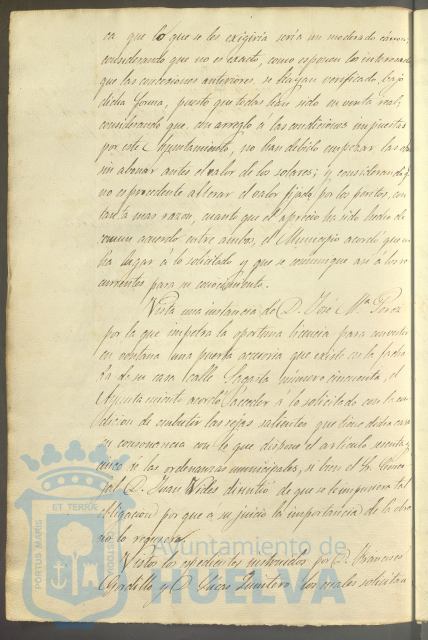 ca que lo que se les exigiria seria un moderado cánon;
considerando que no es exacto, como esponen los interesados
que las concesiones anteriores, se hayan verificado, bajo
dicha forma, puesto que todas han sido en venta real;
considerando que con arreglo á las condiciones impuestas
por este Ayuntamiento, no han debido empezar las obras
sin abonar antes el valor de los solares; y considerando q
no es procedente alterar el valor fijado por los peritos, con
tanta mas razon, cuanto que el aprecio ha sido hecho de
comun acuerdo entre ambos, el Municipio acordó que no
ha lugar á lo solicitado y que se comunique así á los re
currentes para su conocimiento.
Vista una instancia de D. José Mª Perez
por la que impetra la oportuna licencia para convertir
en ventana una puerta accesoria que existe en la facha
da de su casa calle Sagasta número cincuenta, el
Ayuntamiento acordó acceder á lo solicitado con la con
dicion de embutir las rejas salientes que tiene dicha casa
en consonancia con lo que dispone el artículo sesenta y
cinco de las ordenanzas municipales, si bien el Sr. Conce
jal D. Juan Vides disintió de que se le impusiera tal
obligacion por que a su juicio la importancia de la obra
no lo requeria.
Vistos los espedientes instruidos por D. Francisco
Gordillo y D. Quintero los cuales solicitan
PORTUS MARIS ET TERRAE CUSTODIA
Ayuntamiento de
HUELVA